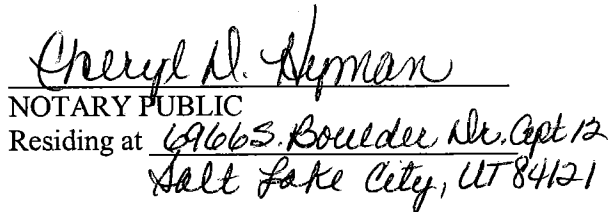 Cheryl D. Hyman
NOTARY PUBLIC
Residing at 6966 S. Boulder Dr. Apt 12
Salt Lake City, UT 84121